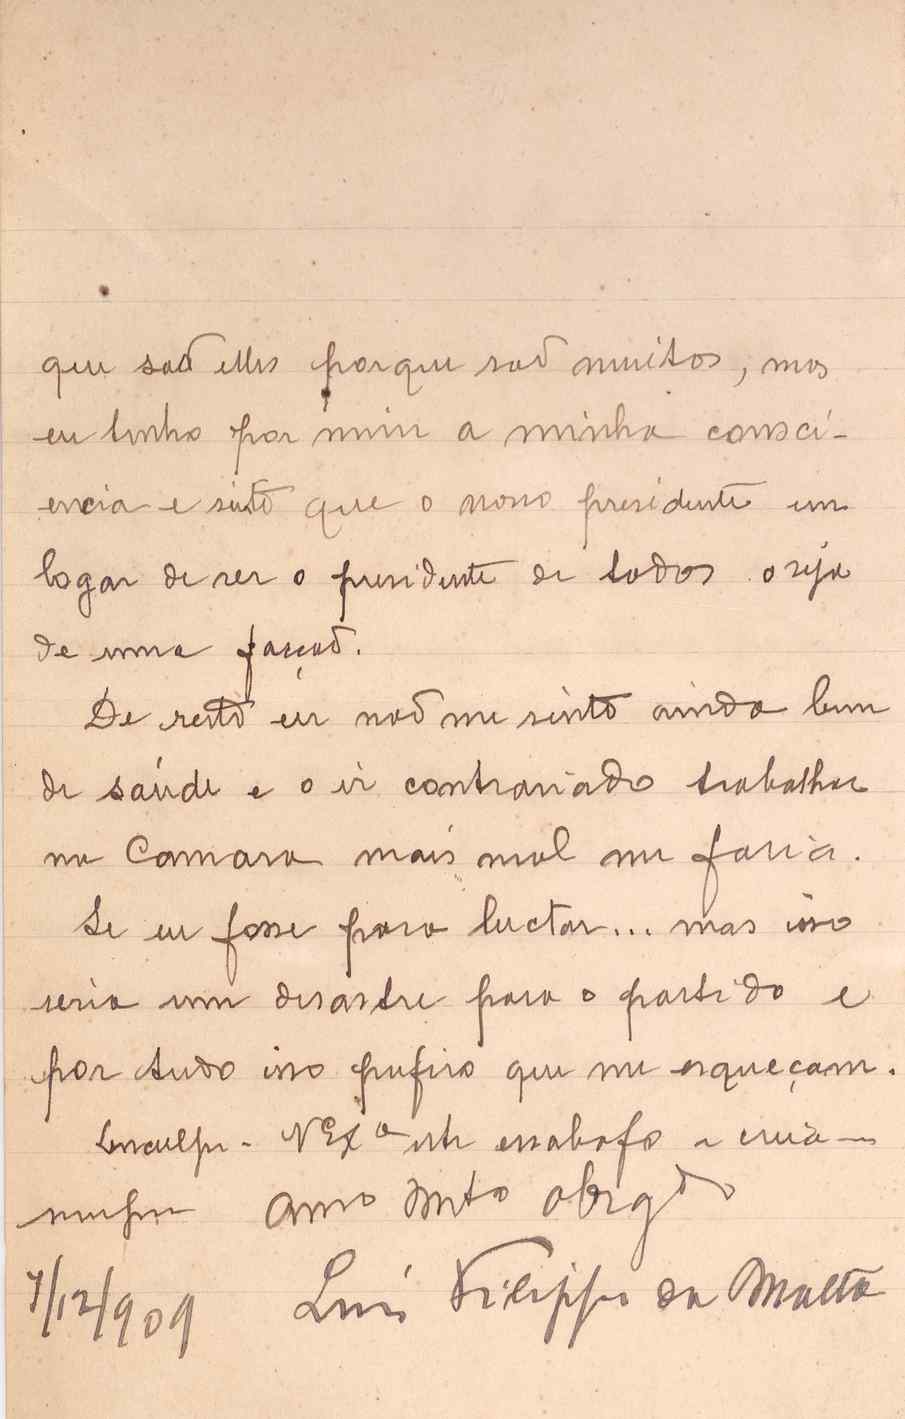 que saõ elles porque saõ muitos, mas
eu tenho por mim a minha consci-
encia e sinto que o nosso presidente em
logar de ser o presidente de todos o seja
de uma facçaõ.
De resto eu naõ me sinto ainda bem
de saúde e o ir contrariado trabalhar
na Camara mais mal me faria.
Se eu fosse para luctar... mas isso
seria um desastre para o partido e
por tudo isso prefiro que me esqueçam.
Desculpe - V Exª este desabafo e creia-
me Amo Mto Obrgdo
7/12/909 Luis Filippe da Matta